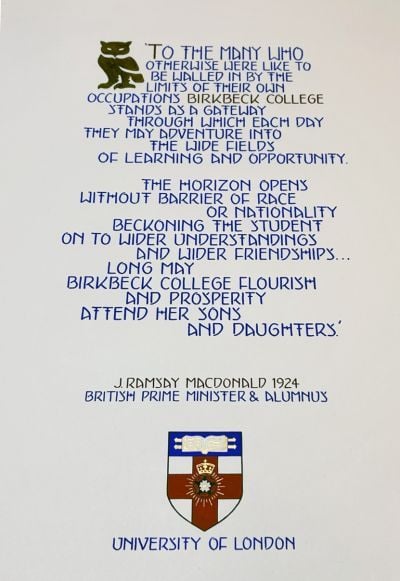 'TO THE MANY WHO
OTHERWISE WERE LIKE TO
BE WALLED IN BY THE
LIMITS OF THEIR OWN
OCCUPATIONS BIRKBECK COLLEGE
STANDS AS A GATEWAY
THROUGH WHICH EACH DAY
THEY MAY ADVENTURE INTO
THE WIDE FIELDS
OF LEARNING AND OPPORTUNITY.
THE HORIZON OPENS
WITHOUT BARRIER OF RACE
OR NATIONALITY
BECKONING THE STUDENT
ON TO WIDER UNDERSTANDINGS
AND WIDER FRIENDSHIPS...
LONG MAY
BIRKBECK COLLEGE FLOURISH
AND PROSPERITY
ATTEND HER SONS
AND DAUGHTERS.'
J. RAMSAY MACDONALD 1924
BRITISH PRIME MINISTER & ALUMNUS
UNIVERSITY OF LONDON